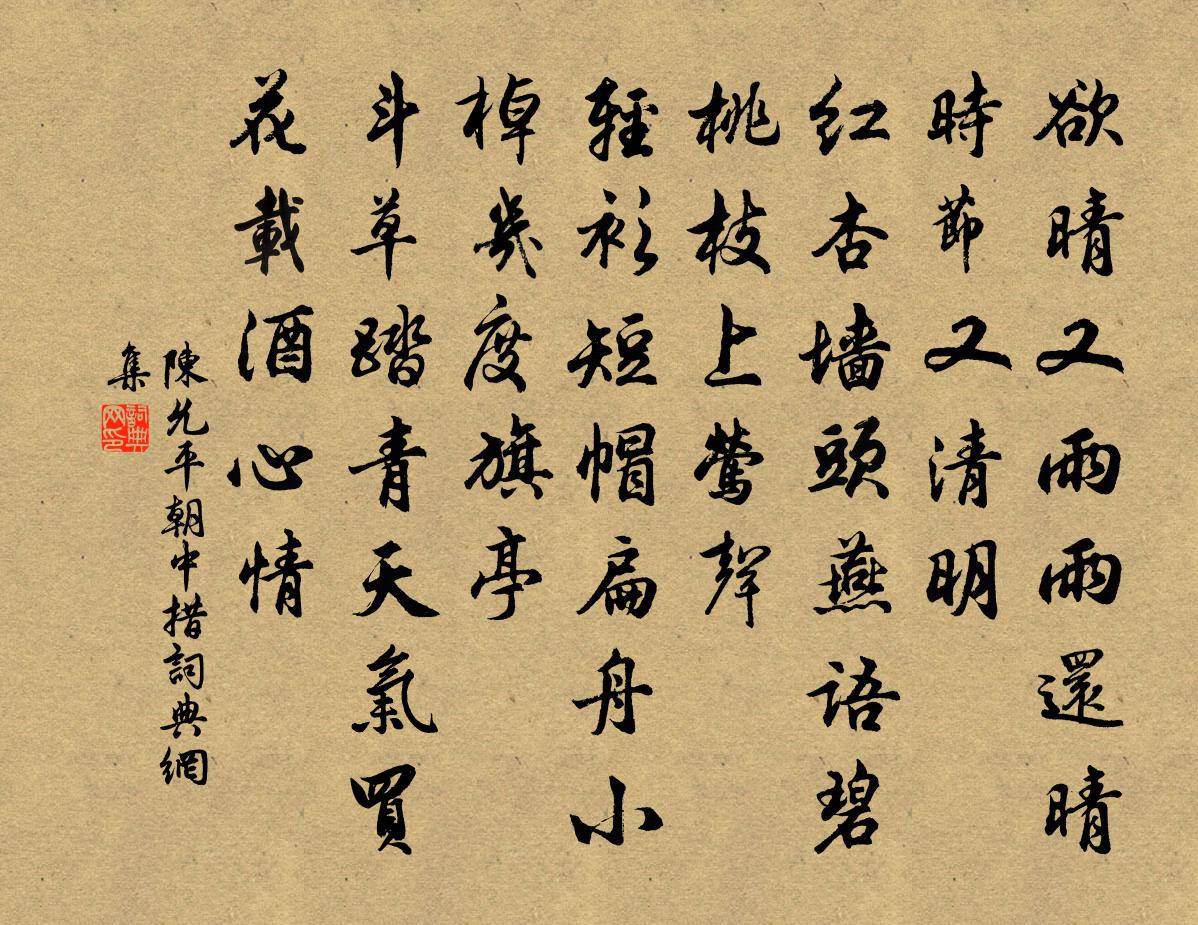 欲晴又雨雨還晴
時節又清明
红杏墙頭燕语碧
桃枝上莺聲
輕衫短帽扁舟小
棹幾度旗亭
斗草踏青天氣買
花載酒心情
陳允平朝中措詞典網
集
詞典
网印